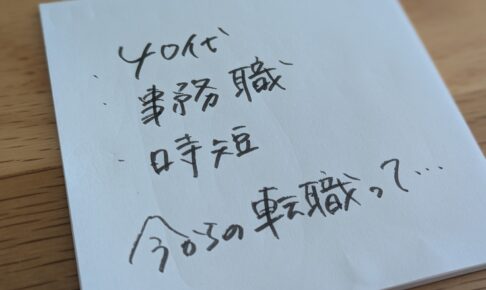 40代
事務職
時短
今からの転職って…